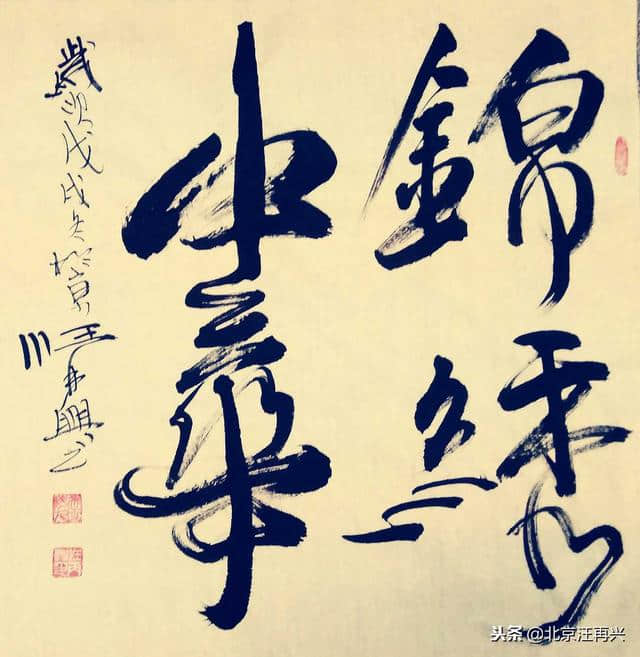 錦繡
中華
歲次戊戌冬於京汪再興书
头条 @北京汪再兴